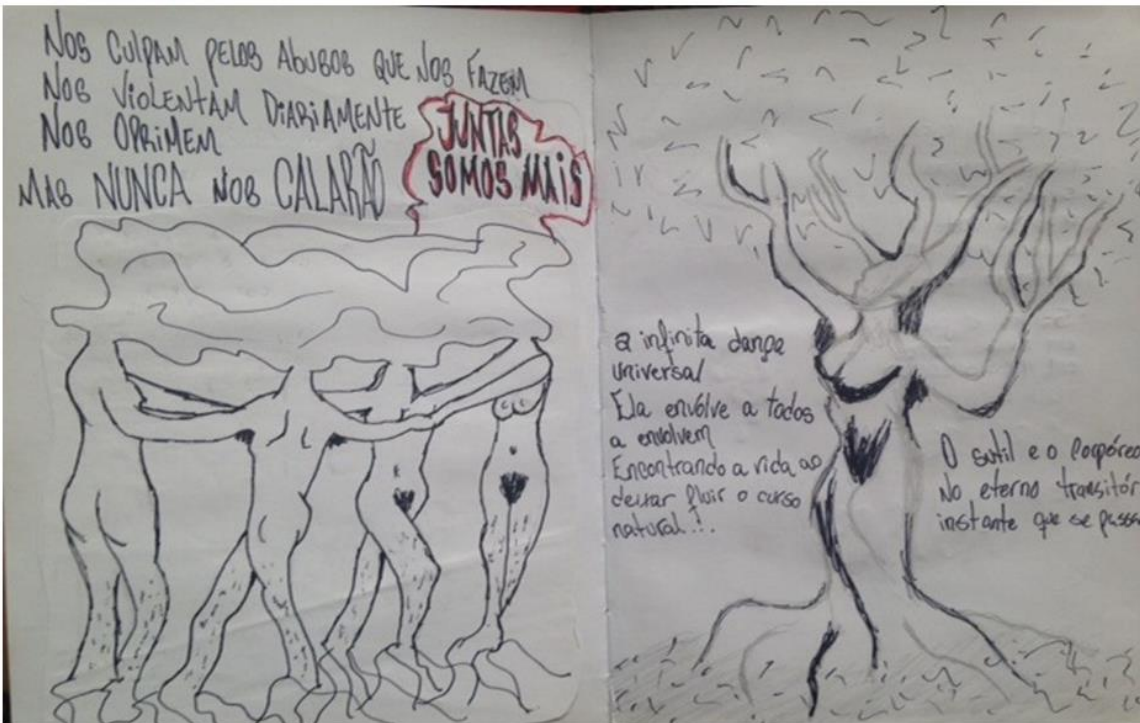 NOS CULPAM PELOS ABUSOS QUE NOS FAZEM
NOS VIOLENTAM DIARIAMENTE
NOS OPRIMEM
MAS NUNCA NOS CALARÃO
JUNTAS
SOMOS MAIS
a infinita dança
universal
Ela envolve a todos
a envolvem
Encontrando a vida ao
deixar fluir o curso
natural!.
O sutil e o corpóreo
No eterno transitór
instante que se passa